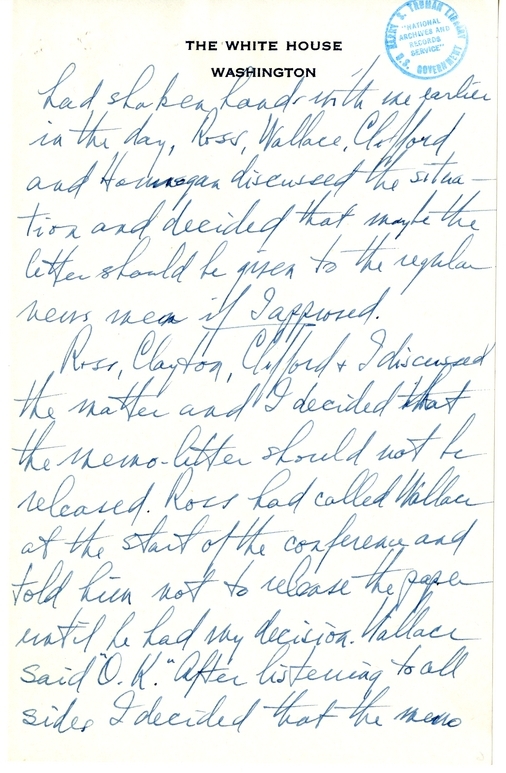 THE WHITE HOUSE
WASHINGTON
HARRY S. TRUMAN LIBRARY
"NATIONAL
ARCHIVES AND
RECORDS
SERVICE"
U.S. GOVERNMENT
had shaken hands with me earlier
in the day, Ross, Wallace, Clifford
and Hannegan discussed the situa-
tion and decided that maybe the
letter should be given to the regular
news men if I approved.
Ross, Clayton, Clifford & I discussed
the matter and I decided that
the memo-letter should not be
released. Ross had called Wallace
at the start of the conference and
told him not to release the paper
until he had my decision. Wallace
said "O.K." After listening to all
sides I decided that the memo